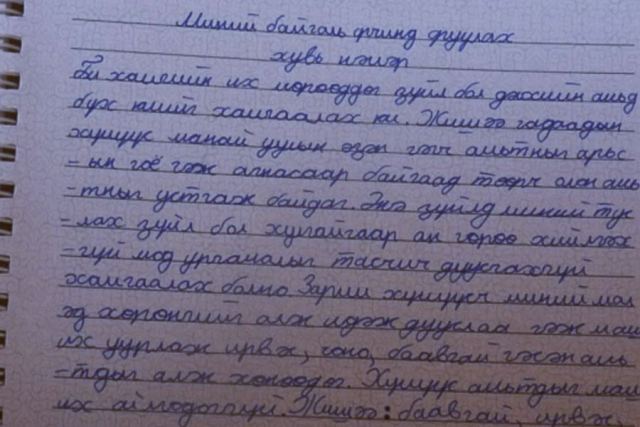 Миний байгаль орчинд оруулах
хувь нэмэр
Би хамгийн их хүсдэг зүйл бол дэлхийн амьд
бүх юмыг хамгаалах юм. Жишээ гадаадын
хүмүүс манай уулын эзэн гэгч амьтныг арьс
-ын гоё гэж агнасаар байгаад төөрч олон амь
-тныг устгаж байдаг. Энэ зүйлд миний тус
-лах зүйл бол хулгайгаар ан гөрөө хийлгэх
-гүй мод ургамалыг тасчиж дуусгахгүй
хамгаалах болно Зарим хүмүүс миний мал
эд хөрөнгийг алж идэж дууслаа гэж маш
их уурлаж ирвэс, чоно, баавгай гэсэн амь
-тдыг алж хөнөөдөг. Хүмүүс амьтдыг маш
их аймдаггүй. Жишээ: баавгай, ирвэс,